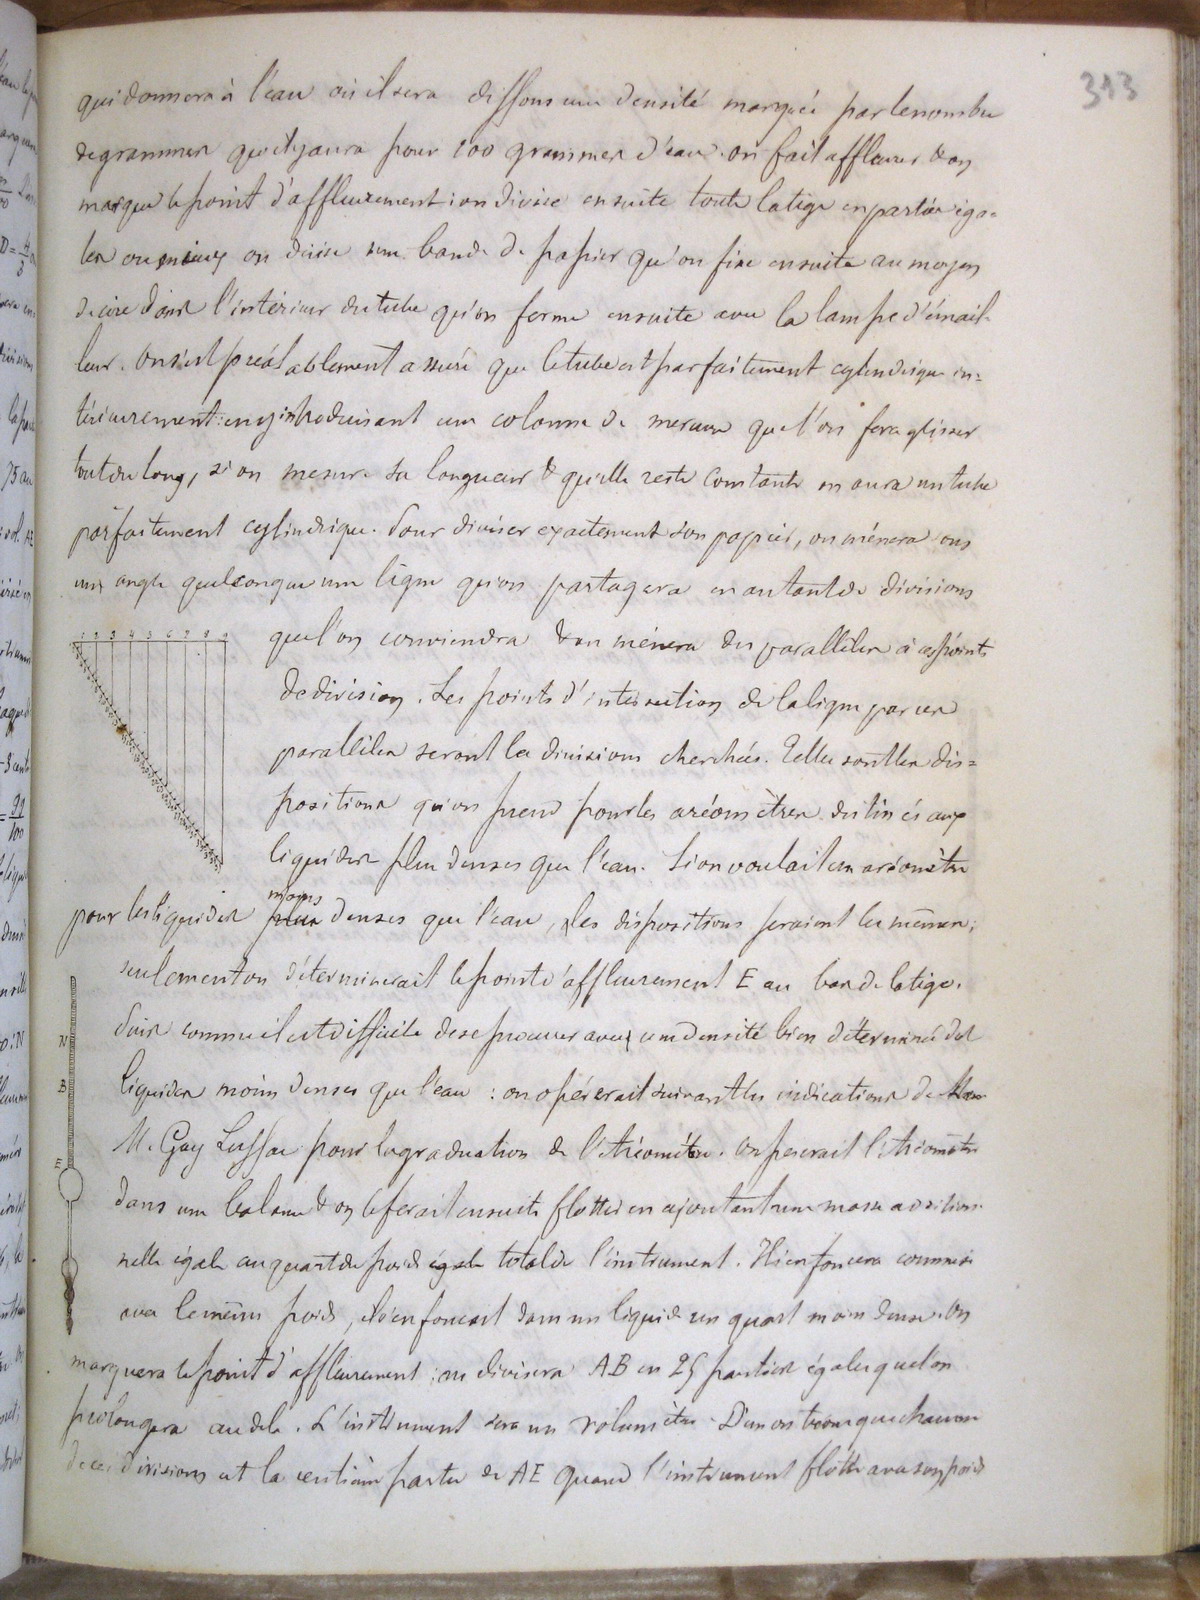 313
qui donnera à l'eau où il sera dissous une densité marquée par le nombre
de grammes qu'il y aura pour 100 grammes d'eau. on fait affleurer & on
marque le point d'affleurement : on divise ensuite toute la tige en parties éga-
les ou mieux on divise une bande de papier qu'on fixe ensuite au moyen
de cire dans l'intérieur du tube qu'on ferme ensuite avec la lampe d'émail-
leur. On s'est préalablement assuré que le tube est parfaitement cylindrique in=
térieurement : en y introduisant une colonne de mercure que l'on fera glisser
tout du long, si on mesure sa longueur & qu'elle reste constante on aura un tube
parfaitement cylindrique. Pour diviser exactement son papier, on mènera sous
un angle quelconque une ligne qu'on partagera en autant de divisions
1 2 3 4 5 6 7 8 9
que l'on conviendra & on mènera des parallèles à ces points
de division. Les points d'intersection de la ligne par ces
parallèles seront les divisions cherchées. Telles sont les dis=
positions qu'on prend pour les aréomètres destinés aux
liquides plus denses que l'eau. Si on voulait un aréomètre
pour les liquides moins denses que l'eau, les dispositions seraient les mêmes;
seulement on déterminerait le point d'affleurement E au bas de la tige.
Puis comme il est difficile de se procurer avec une densité bien déterminée des
N
liquides moins denses que l'eau : on opérerait suivant les indications de
B
M. Gay Lussac pour la graduation de l'Aréomètre. On peserait l'Aréomètre
E
dans une balance & on le ferait ensuite flotter en ajoutant une masse addition-
nelle égale au quart du poids total de l'instrument. Il s'enfoncera comme si
avec le même poids, il s'enfonçait dans un liquide un quart moins dense. On
marquera le point d'affleurement : on divisera AB en 25 parties égales que l'on
prolongera au delà. L'instrument sera un volumètre. D'un autre que chacune
de ces divisions est la centième partie de AE quand l'instrument flotte avec son poids